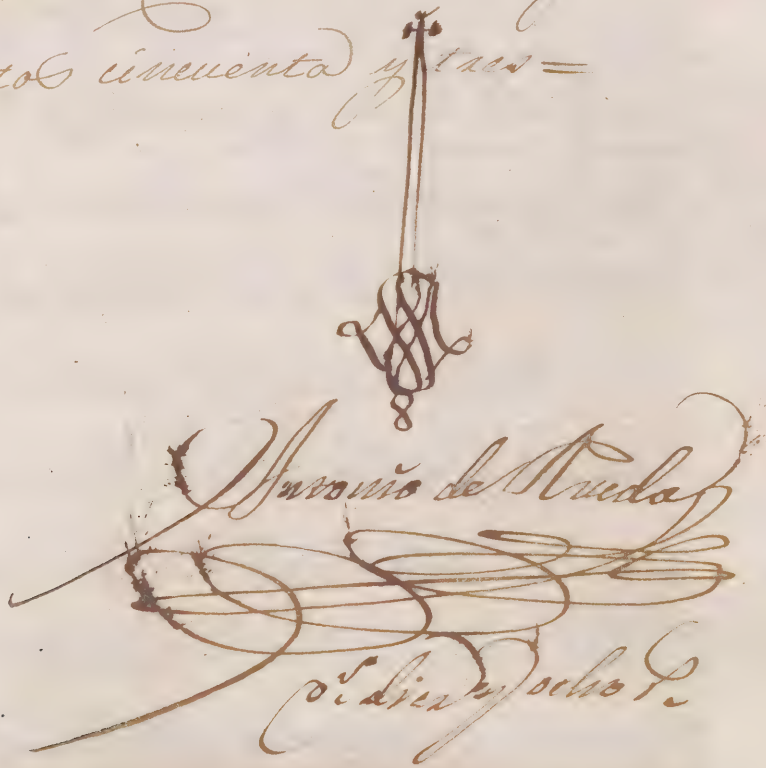 tos cincuenta y tres =
Antonio de Rueda
Dr. diez y ocho r.